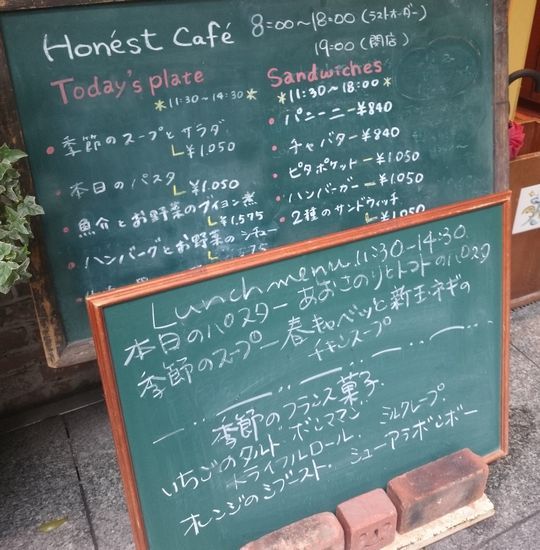 Honést Café 8:00〜18:00(ラストオーダー)
19:00(閉店)
Today's plate
*11:30〜14:30*
• 季節のスープとサラダ
¥1.050
• 本日のパスタ
¥1.050
• 魚介とお野菜のブイヨン煮
¥1.575
• ハンバーグとお野菜のシチュー
575
Sandwiches
*11:30〜18:00*
• パニーニー¥840
チャバター¥840
• ピタポケットー¥1.050
• ハンバーガー¥1.050
• 2種のサンドウィッチ
¥1.050
Lunch menu 11:30-14:30
本日のパスターあおさのりとトマトのパスタ
季節のスープー春キャベツと新玉ネギの
チキンスープ
季節のフランス菓子
いちごのタルト ボンママン ミルクレープ
トライフルロール. シューアラボンボー
オレンジのシブースト.